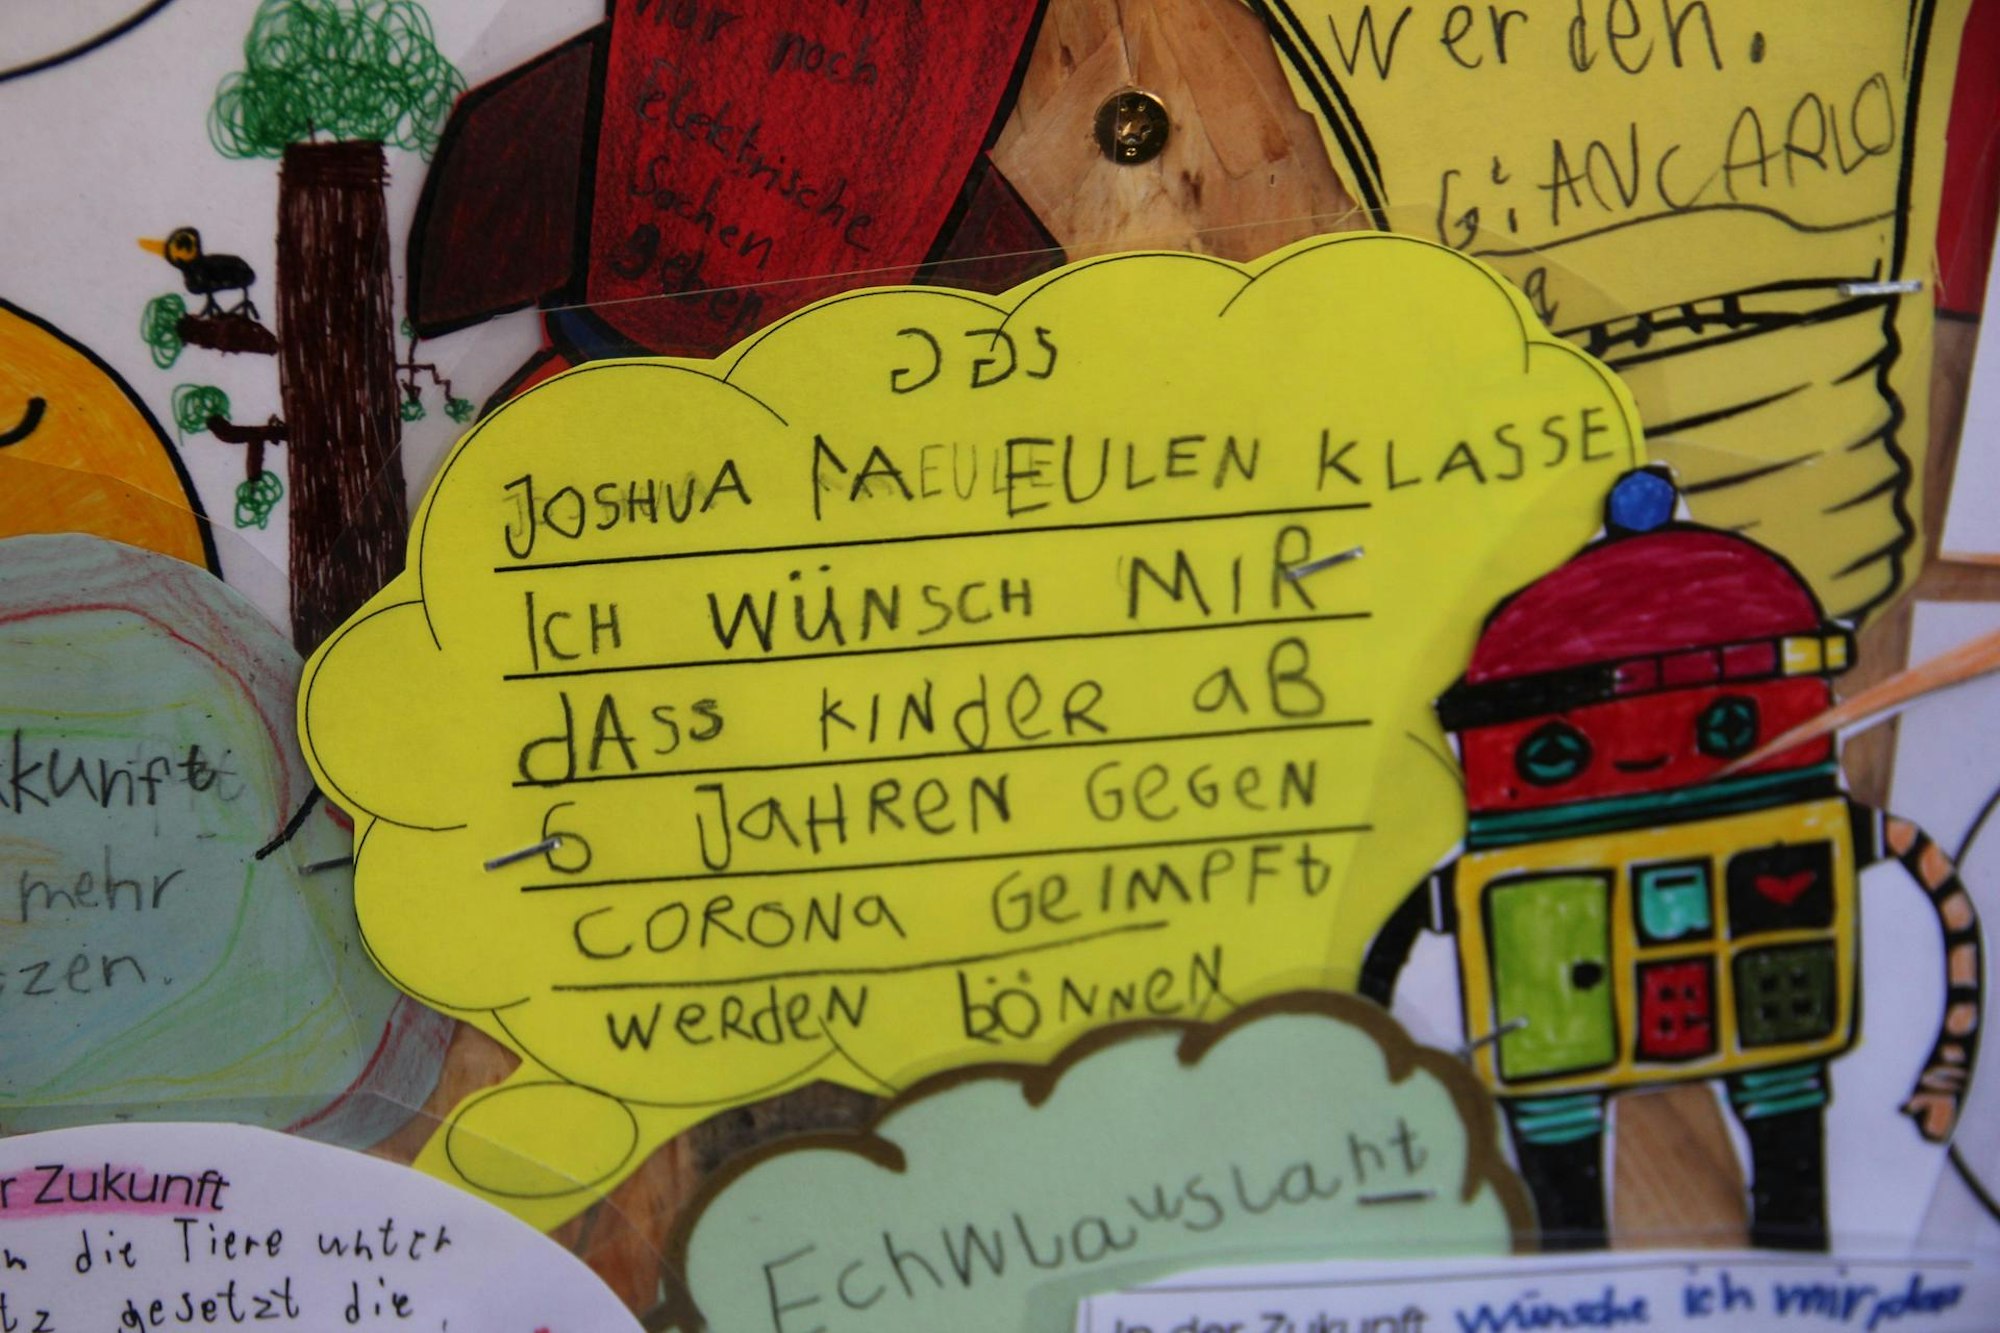 nur noch
Elektrische
Sachen
geben
werden.
GiANCARLO
GGS
JOSHUA EULEN KLASSE
ICH WÜNSCH MIR
dASS KINdeR aB
6 JaHReN GeGeN
CORONa GeIMPFt
WeRdeN KÖNNeN
kunft
mehr
zen.
r Zukunft
n die Tiere unter
tz gesetzt die
EchWLausLaht
In der Zukunft wünsche ich mir,